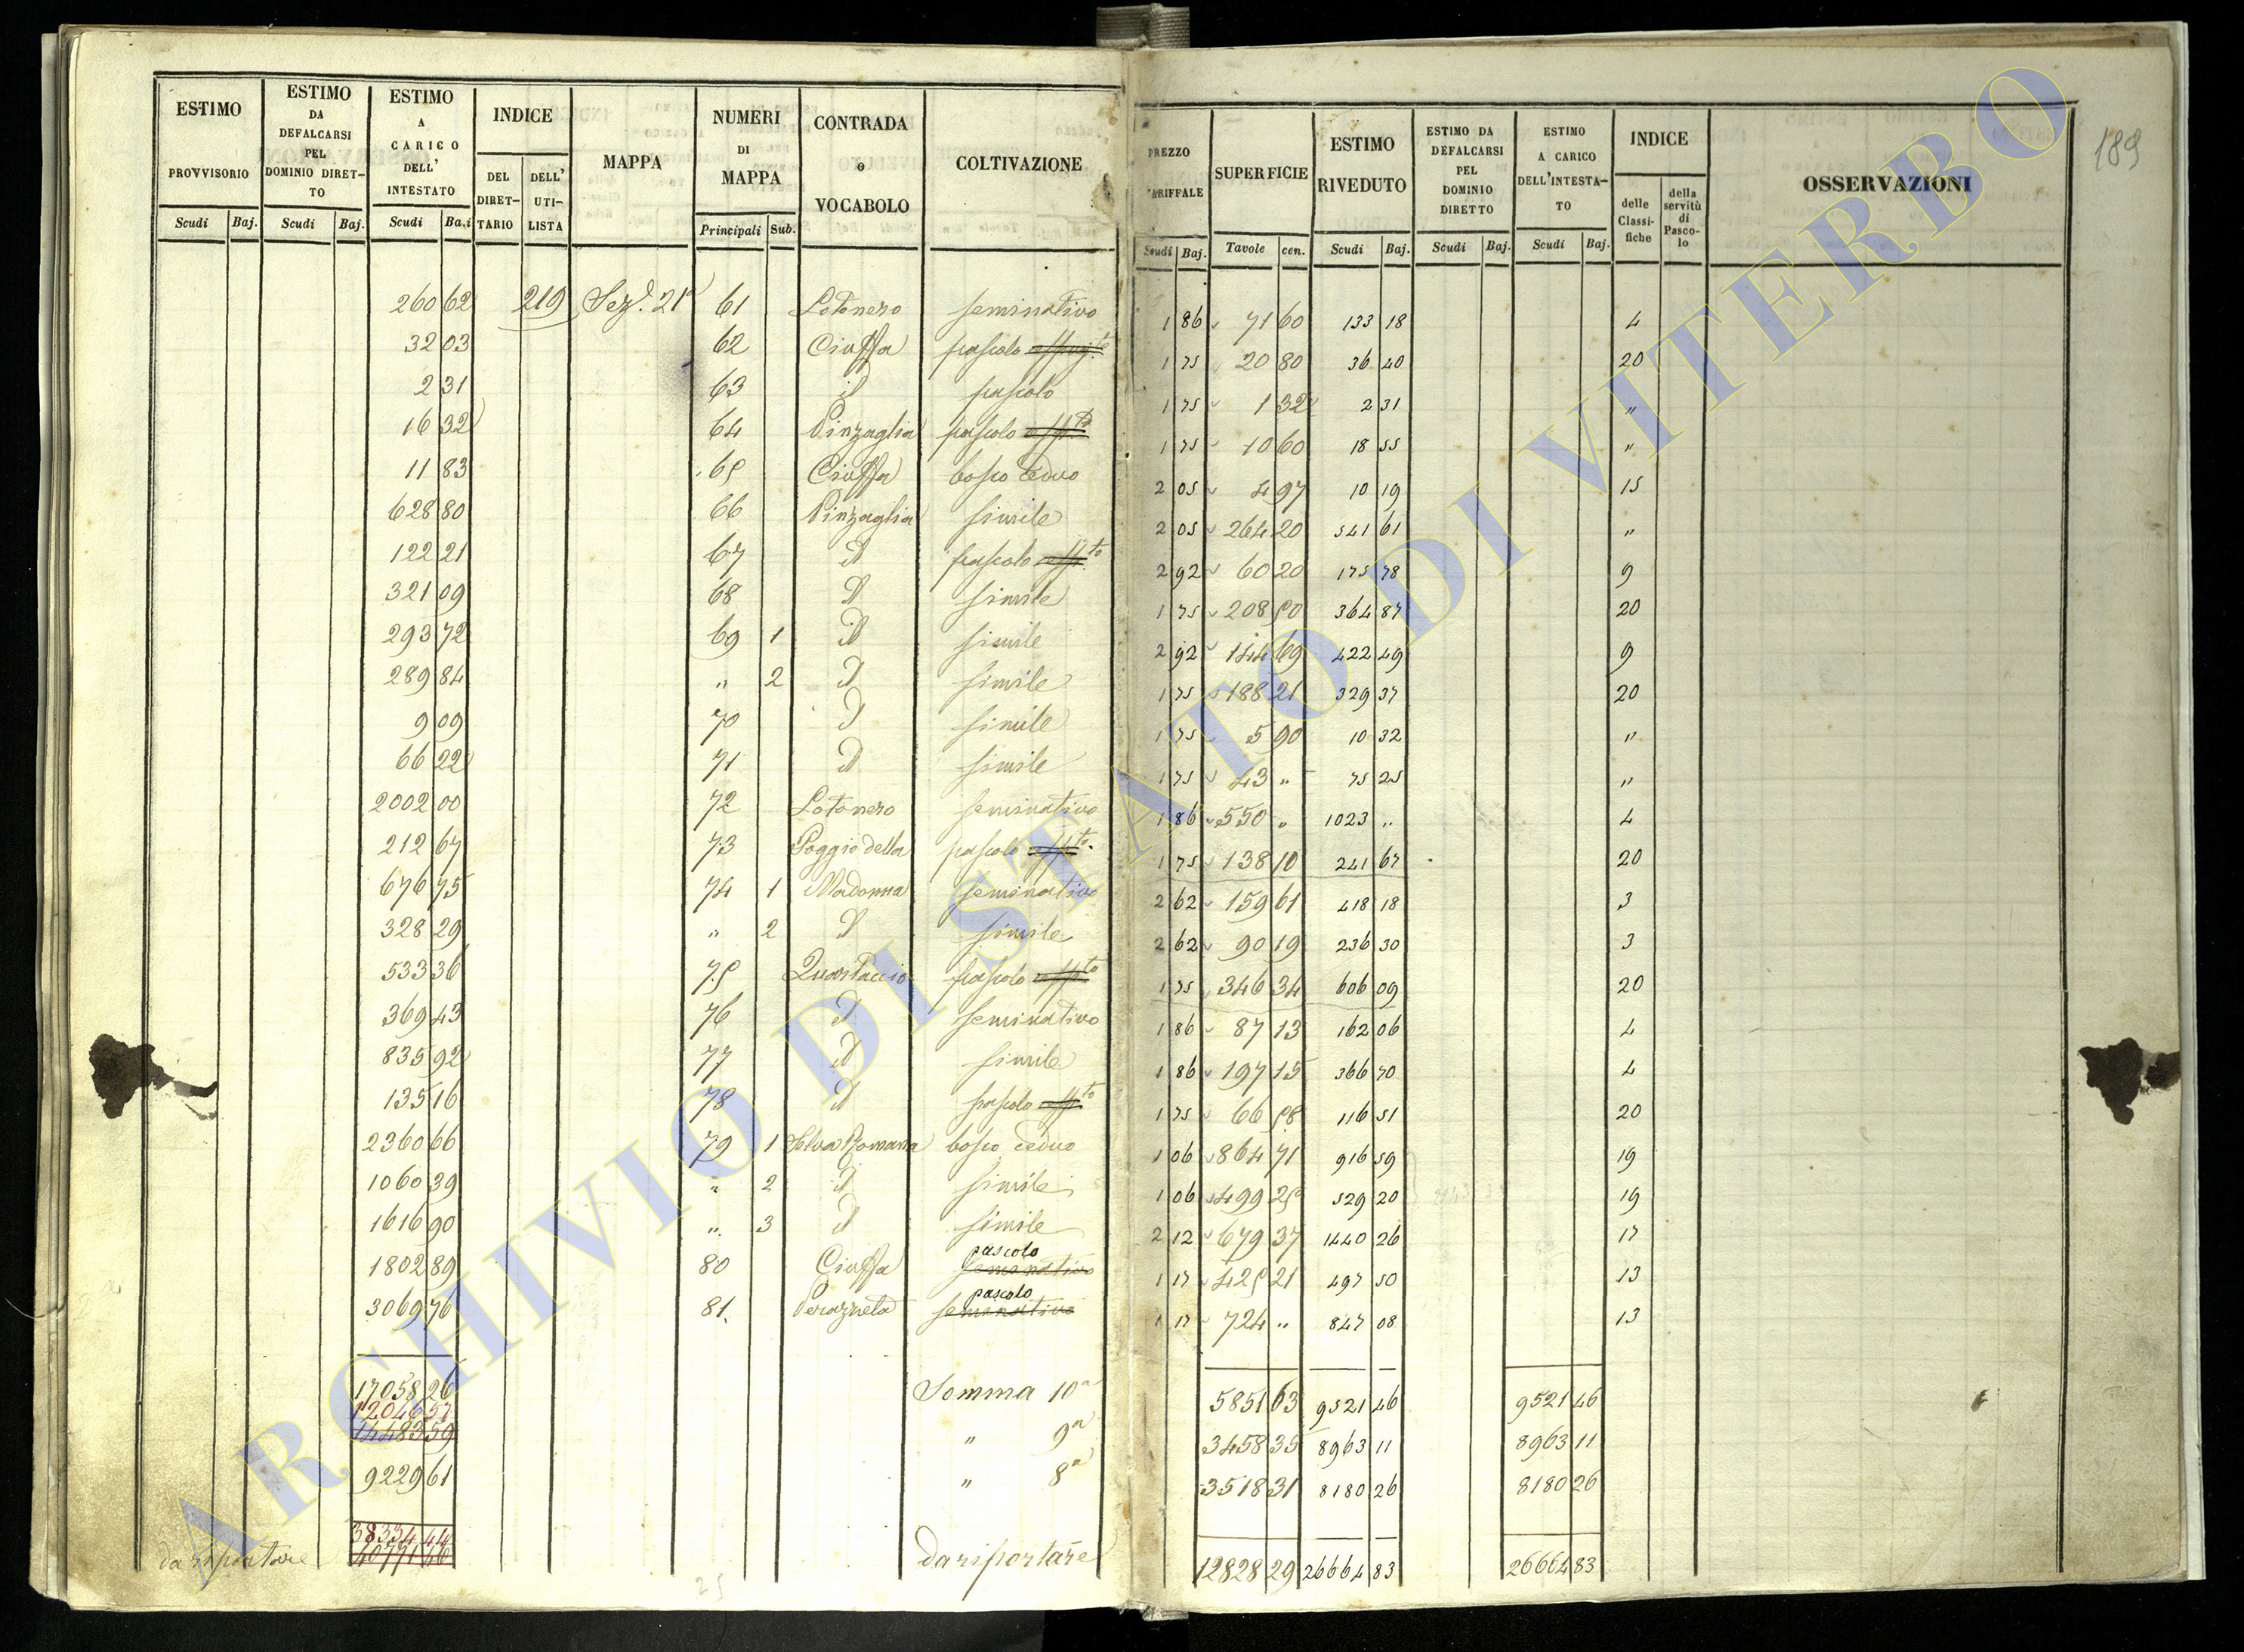 ESTIMO PROVVISORIO Scudi Baj.
ESTIMO DA DEFALCARSI PEL DOMINIO DIRETTO Scudi Baj.
ESTIMO A CARICO DELL' INTESTATO Scudi Ba.i
INDICE DEL DIRETTARIO DELL' UTILISTA
MAPPA
NUMERI DI MAPPA Principali Sub.
CONTRADA o VOCABOLO
COLTIVAZIONE
PREZZO TARIFFALE Scudi Baj.
SUPERFICIE Tavole cen.
ESTIMO RIVEDUTO Scudi Baj.
ESTIMO DA DEFALCARSI PEL DOMINIO DIRETTO Scudi Baj.
ESTIMO A CARICO DELL'INTESTATO Scudi Baj.
INDICE delle Classifiche della servitù di Pascolo
OSSERVAZIONI
189
260 62 219 Sez.e 21a 61 Lotonero seminativo 1 86 71 60 133 18 4
32 03 62 Ciuffa pascolo 1 75 20 80 36 40 20
2 31 63 id pascolo 1 75 1 32 2 31 "
16 32 64 Pinzaglia pascolo 1 75 10 60 18 55 "
11 83 65 Ciuffa bosco ceduo 2 05 4 97 10 19 15
628 80 66 Pinzaglia simile 2 05 264 20 541 61 "
122 21 67 id pascolo 2 92 60 20 175 78 9
321 09 68 id simile 1 75 208 50 364 87 20
293 72 69 1 id simile 2 92 144 69 422 49 9
289 84 " 2 id simile 1 75 188 21 329 37 20
9 09 70 id simile 1 75 5 90 10 32 "
66 22 71 id simile 1 75 43 " 75 25 "
2002 00 72 Lotonero seminativo 1 86 550 " 1023 " 4
212 67 73 Poggio della pascolo 1 75 138 10 241 67 20
676 75 74 1 Madonna seminativo 2 62 159 61 418 18 3
328 29 " 2 id simile 2 62 90 19 236 30 3
533 36 75 Quartaccio pascolo 1 75 346 34 606 09 20
369 43 76 id seminativo 1 86 87 13 162 06 4
835 92 77 id simile 1 86 197 15 366 70 4
135 16 78 id pascolo 1 75 66 58 116 51 20
2360 66 79 1 Selva Romana bosco ceduo 1 06 864 71 916 59 19
1060 39 " 2 id simile 1 06 499 25 529 20 19
1616 90 " 3 id simile 2 12 679 37 1440 26 17
1802 89 80 Ciuffa seminativo pascolo 1 17 425 21 497 50 13
3069 76 81. seminativo pascolo 1 17 724 " 847 08 13
17058 26 Somma 10a 5851 63 9521 46 9521 46
12046 57
14483 59 " 9a 3458 35 8963 11 8963 11
9229 61 " 8a 3518 31 8180 26 8180 26
38334 44
40771 46
da riportare da riportare 12828 29 26664 83 26664 83
25
ARCHIVIO DI STATO DI VITERBO